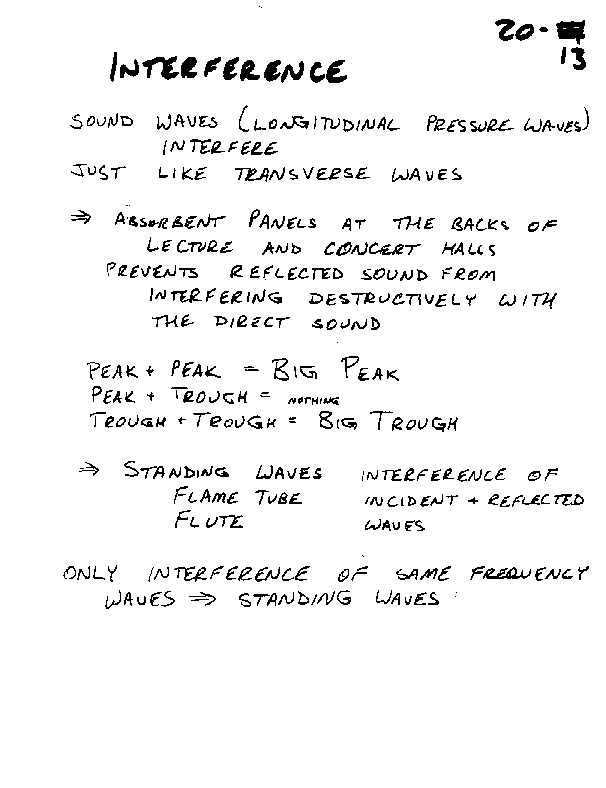 20-
13
INTERFERENCE
SOUND WAVES (LONGITUDINAL PRESSURE WAVES)
INTERFERE
JUST LIKE TRANSVERSE WAVES
⇒ ABSORBENT PANELS AT THE BACKS OF
LECTURE AND CONCERT HALLS
PREVENTS REFLECTED SOUND FROM
INTERFERING DESTRUCTIVELY WITH
THE DIRECT SOUND
PEAK + PEAK = BIG PEAK
PEAK + TROUGH = NOTHING
TROUGH + TROUGH = BIG TROUGH
⇒ STANDING WAVES INTERFERENCE OF
FLAME TUBE INCIDENT + REFLECTED
FLUTE WAVES
ONLY INTERFERENCE OF SAME FREQUENCY
WAVES ⇒ STANDING WAVES